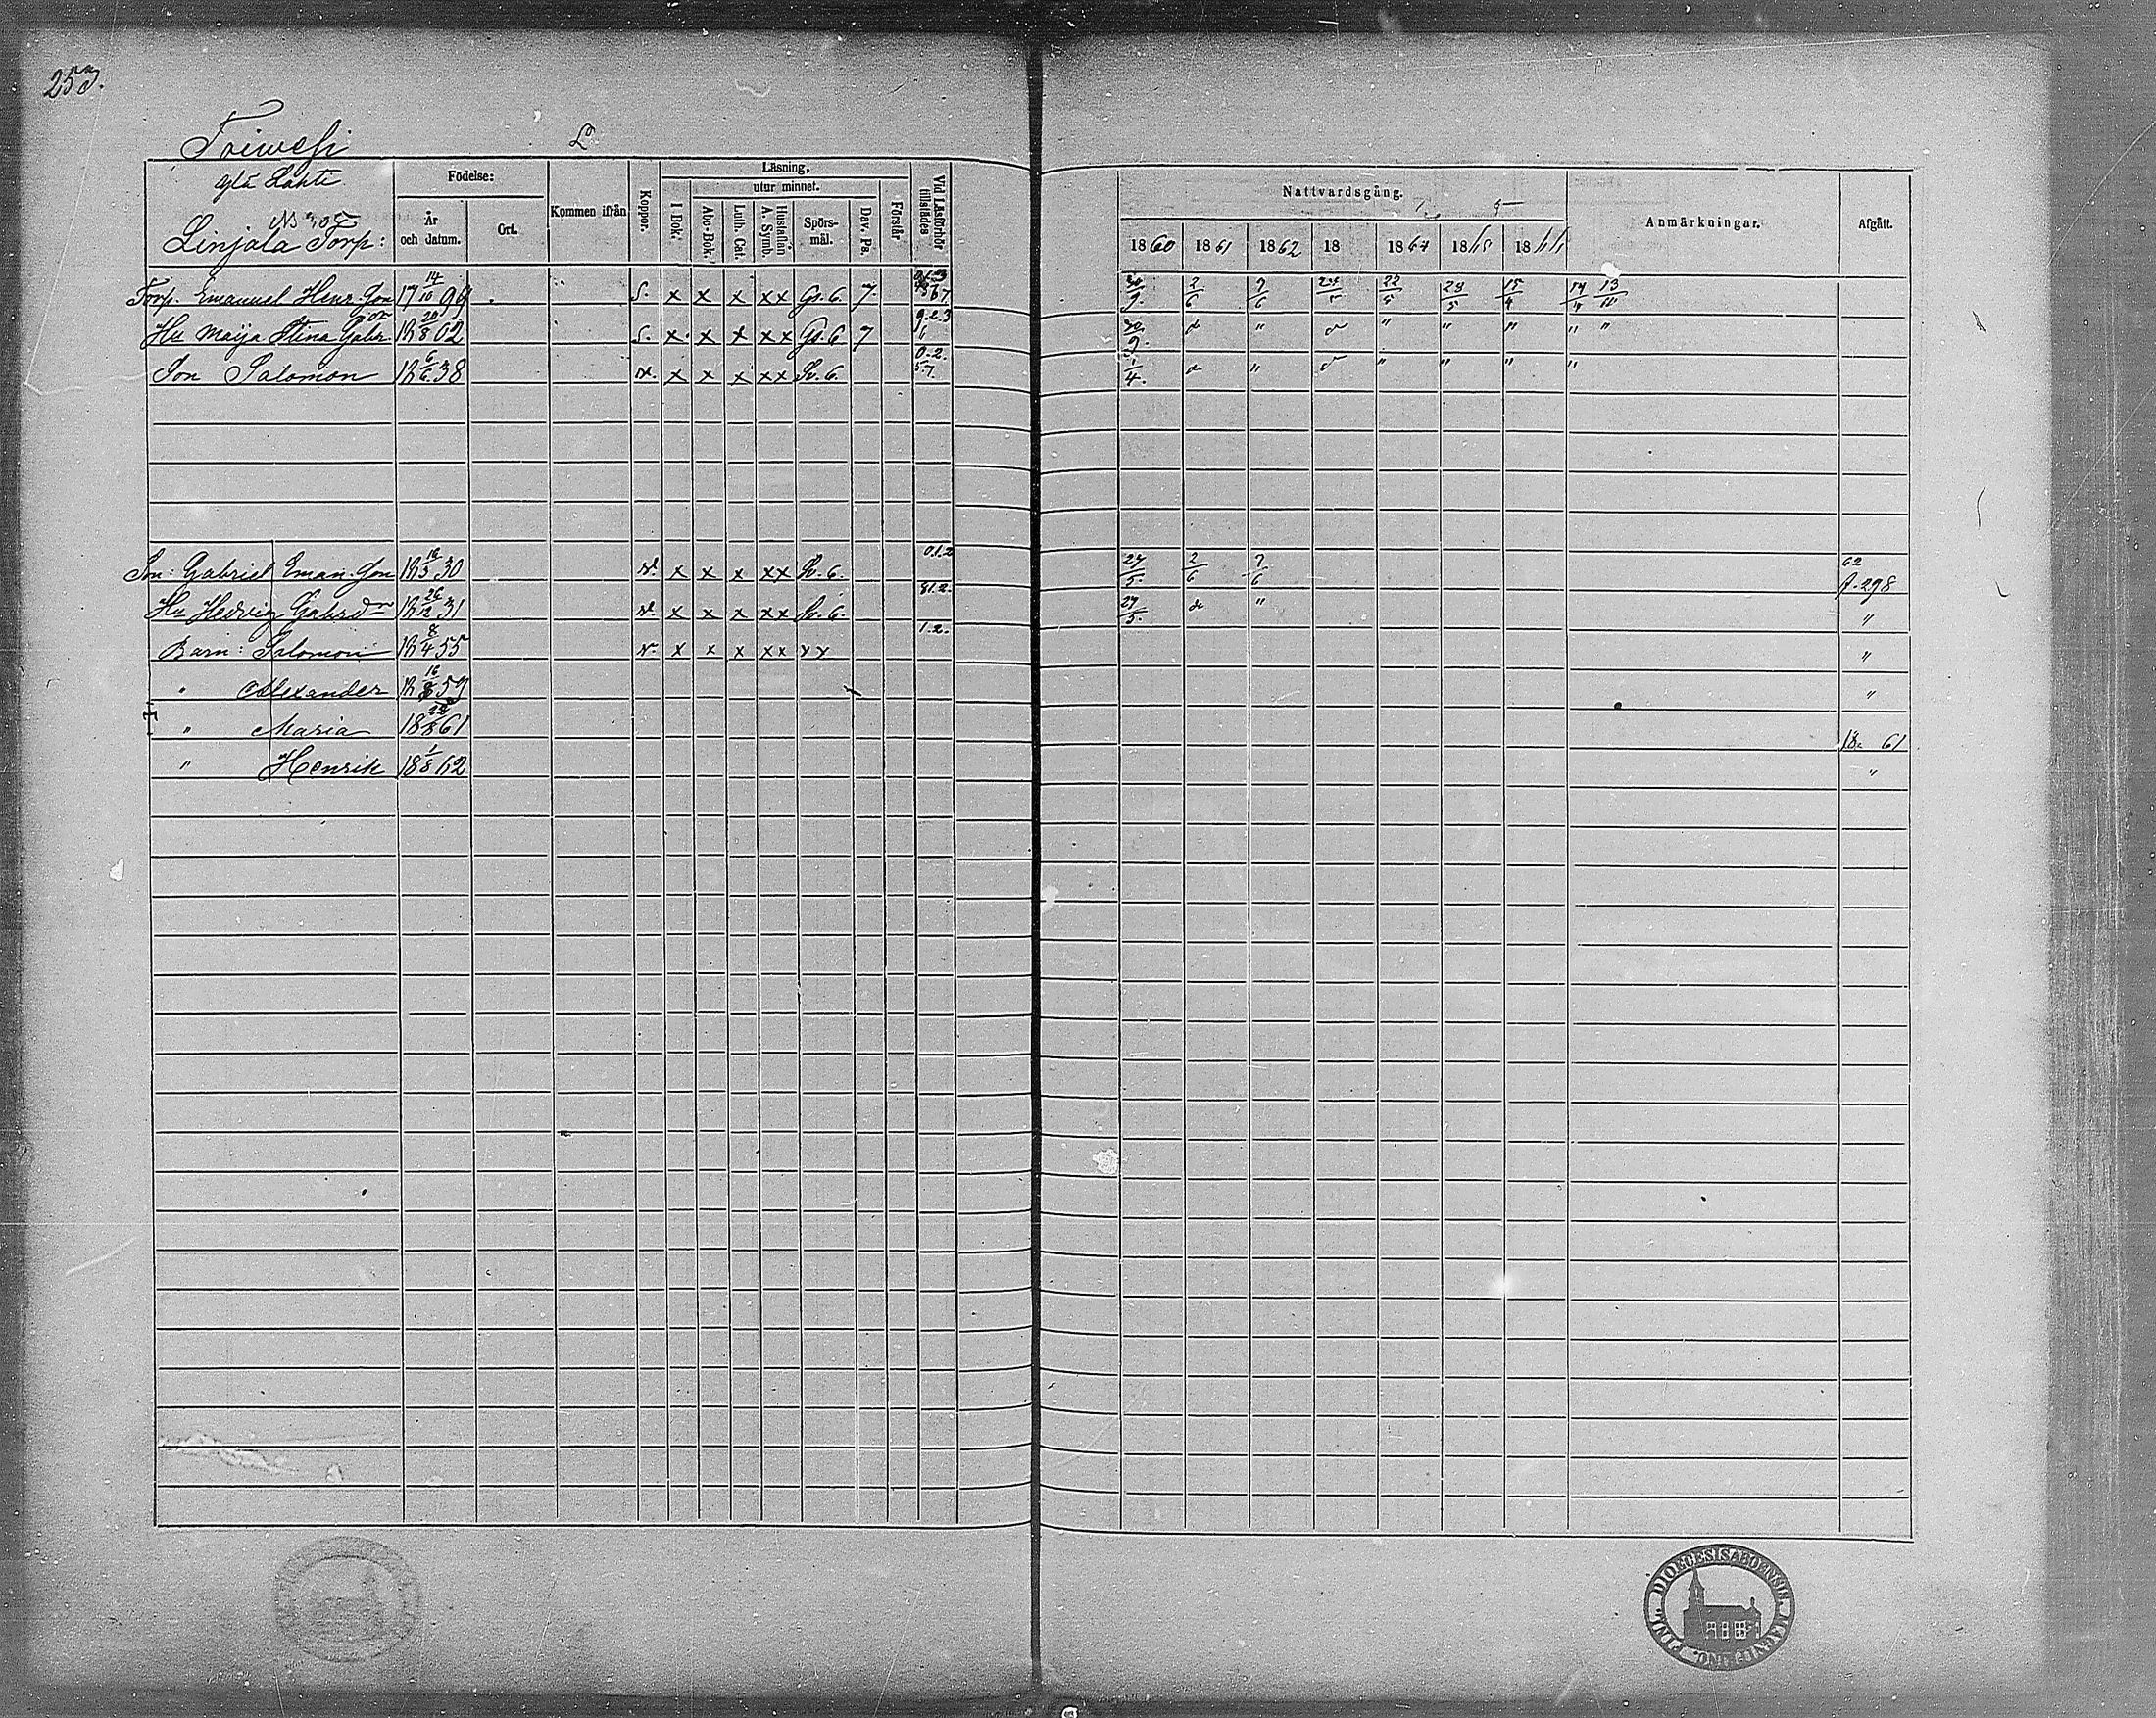 253.
Toiwesi
L
ylä Lahti
No 3
Linjala Torp:
Födelse:
År och datum.
Ort.
Kommen ifrån
Koppor.
Läsning,
utur minnet.
I Bok.
Abc-Bok.
Luth. Cat.
Hustaflan A. Symb.
Spörs-mål.
Dav. Ps.
Förstår
Vid Läsförhör tillstädes
Nattvardsgång.
1860 1861 1862 18 1864 1865 1866
Anmärkningar.
Afgått.
Torp. Emanuel Henr. Son 17 14/10 99 s. x x x xx Gs. 6. 7. 30/9 2/6 7/6 24/5 22/5 28/5 15/4 13/10
Hu Maija Stina Gabr. 18 20/8 02 s. x x x xx Gs. 6 7 9.2.3 30/9. " " " " " "
Son Salomon 18 6/6 38 x x x xx Sv. 6. 0.2. 57. 1/4. " " " " "
Son: Gabriel Eman. Son 18 16/3 30 x x x xx Sv. 6. 0.1.2 27/5. 2/6 7/6 62 p. 298
Hu Hedvig Gabrdr 18 26/12 31 x x x xx Sv. 6. 81.2. 27/5. " "
Barn: Salomon 18 8/4 55 x x x xx xx 1.2. "
" Alexander 18 16/8 59 "
" Maria 18 61 61
" Henrik 18 1/5 62 "
FINL. DIOECESIS ABOENSIS